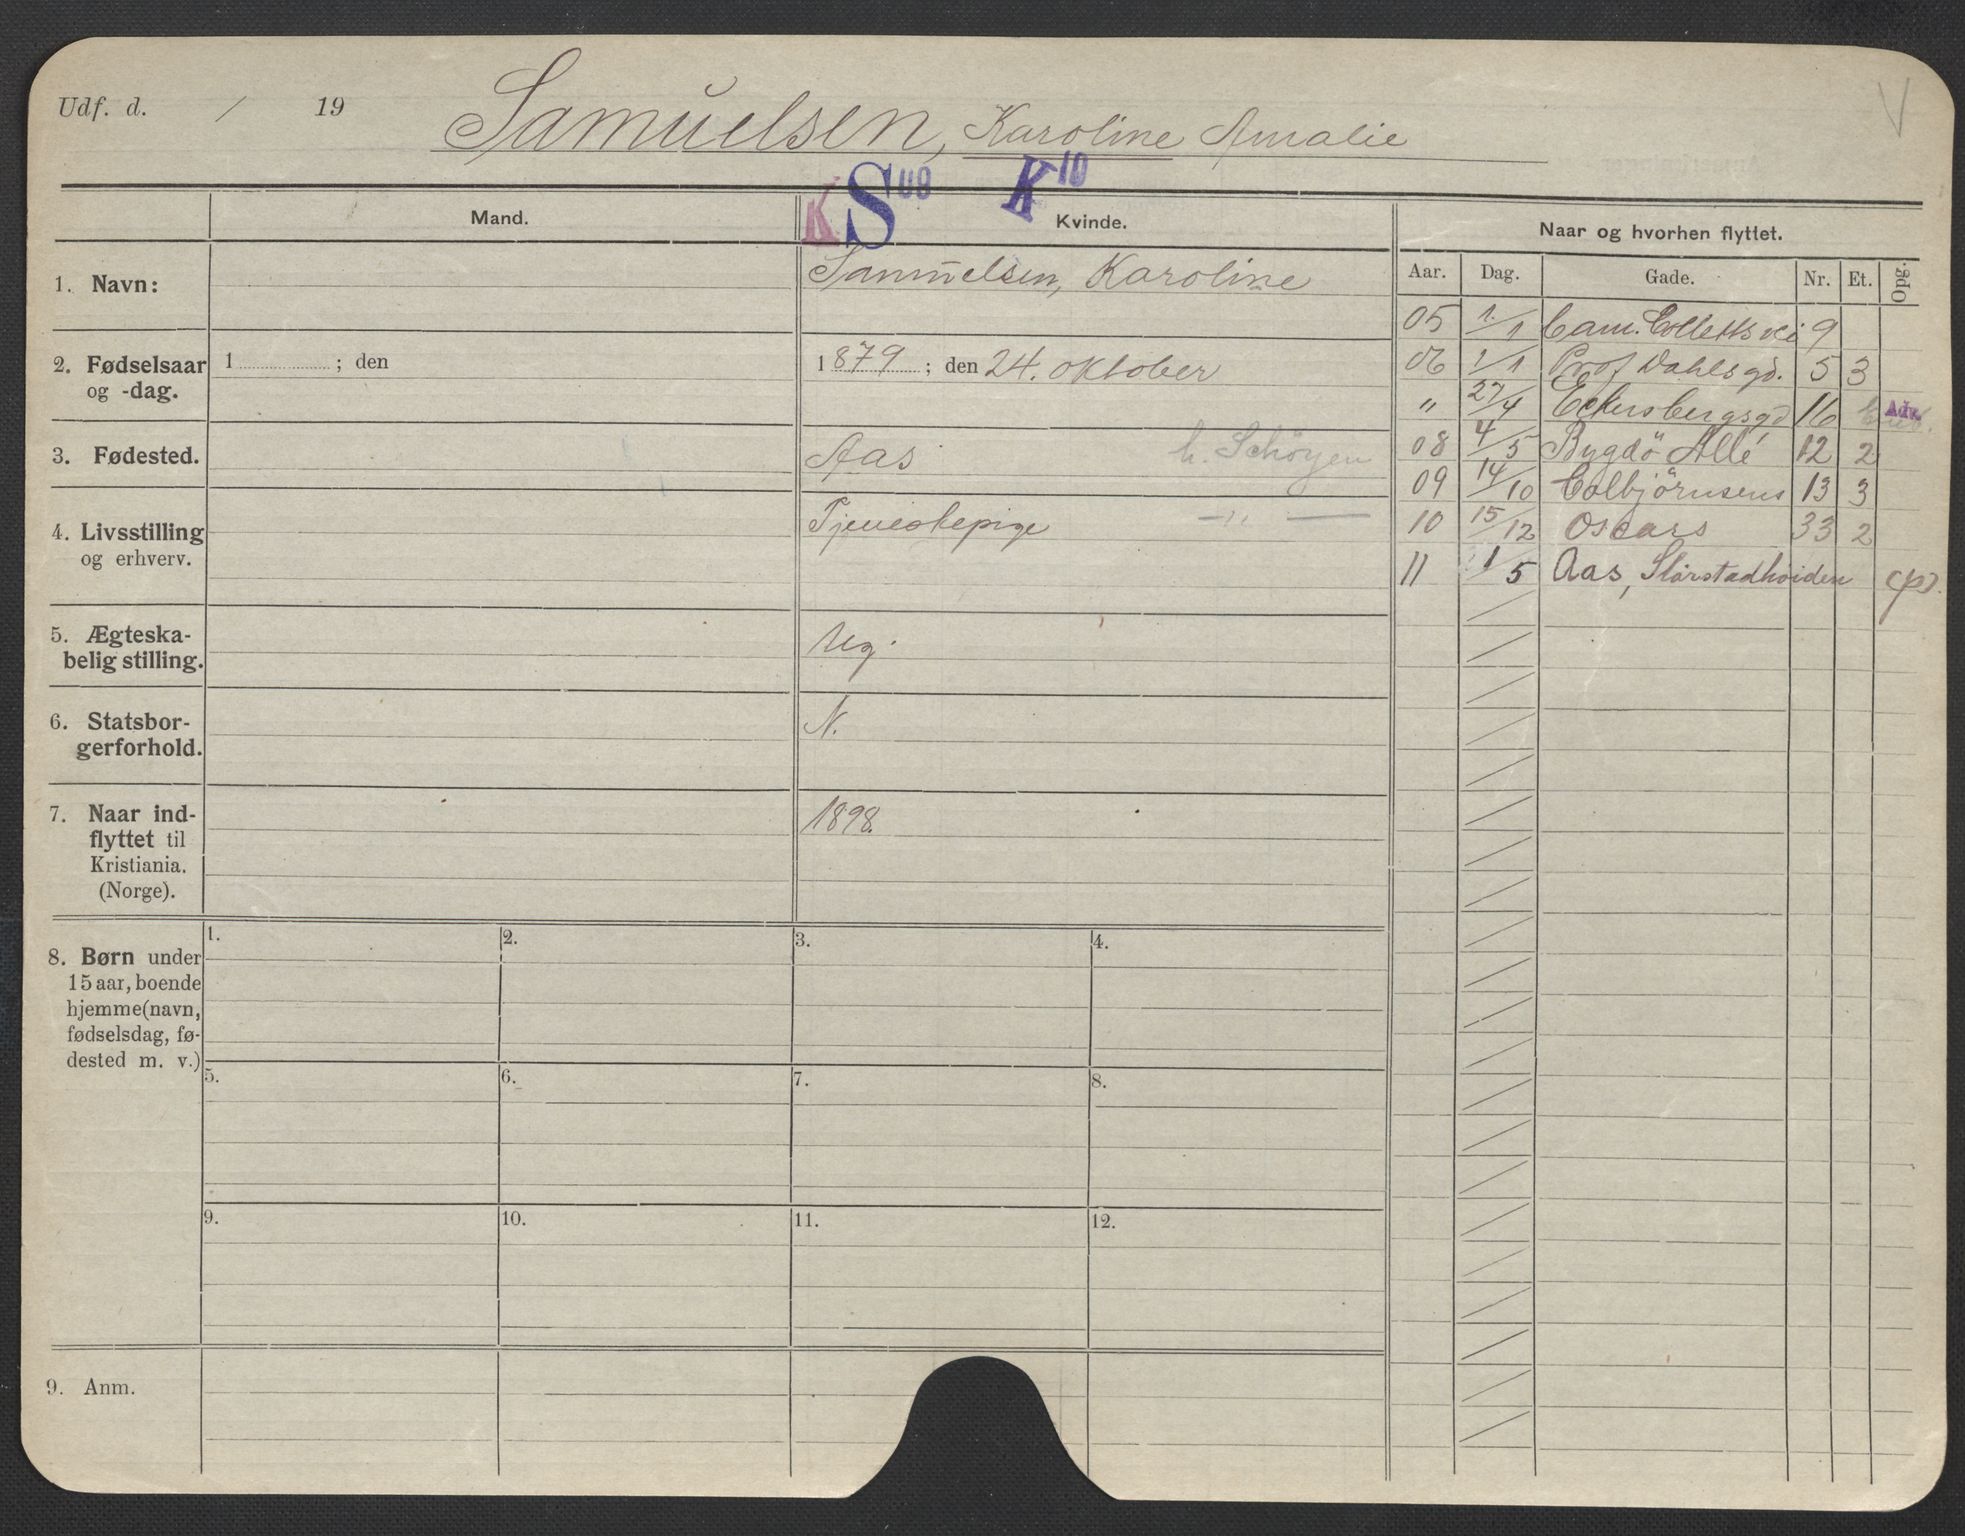 Udf. d. / 19 Samuelsen, Karoline Amalie V
K S 09 K 10
Mand. Kvinde. Naar og hvorhen flyttet.
Aar. Dag. Gade. Nr. Et. Opg.
1. Navn: Samuelsen, Karoline
05 1/1 Cam. Colletts vei 9
2. Fødselsaar og -dag. 1 ; den 1879 ; den 24. oktober
06 1/1 Prof Dahls gd. 5 3
" 27/4 Eckersbergsgd 16 Adr.
3. Fødested. Aas h. Schöyen
08 4/5 Bygdö Allé 12 2
09 14/10 Colbjörnsens 13 3
4. Livsstilling og erhverv. Tjenestepige — " —
10 15/12 Oscars 33 2
11 1/5 Aas, Slörstadhöiden
5. Ægteska-
belig stilling. Ug.
6. Statsbor-
gerforhold. N.
7. Naar ind-
flyttet til
Kristiania.
(Norge). 1898.
8. Børn under
15 aar, boende
hjemme (navn,
fødselsdag, fø-
dested m. v.)
1. 2. 3. 4.
5. 6. 7. 8.
9. 10. 11. 12.
9. Anm.